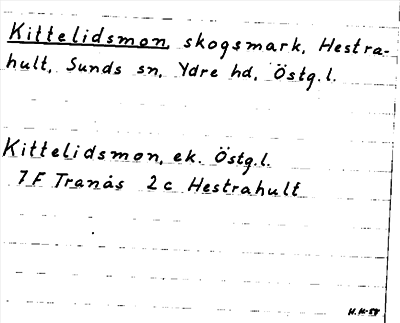 Kittelidsmon, skogsmark, Hestra-
hult, Sunds sn, Ydre hd, Östg.l.
Kittelidsmon, ek. Östg.l.
7F Tranås 2c Hestrahult